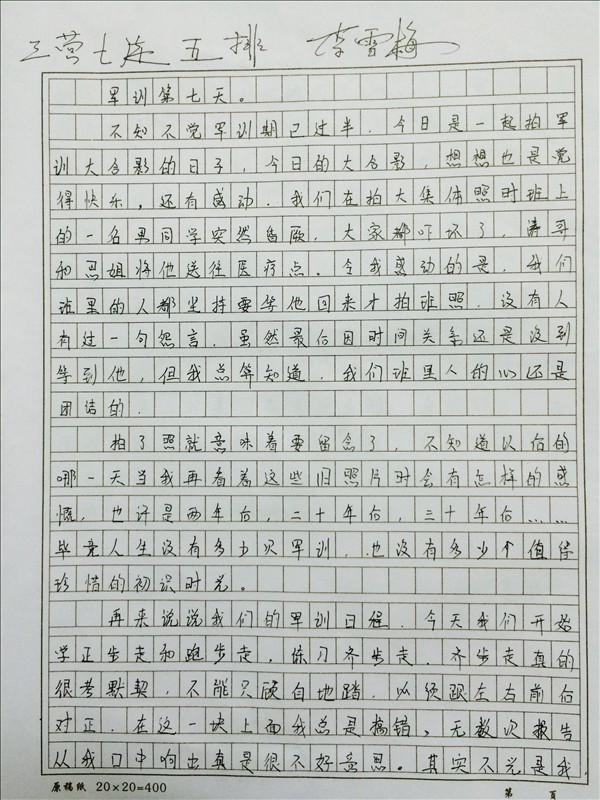 三营七连 五排 李雪梅
军训第七天。
不知不觉军训期已过半．今日是一起拍军
训大合影的日子，今日的大合影，想想也是觉
得快乐，还有感动．我们在拍大集体照时班上
的一名男同学突然昏厥．大家都吓坏了，涛哥
和思姐将他送往医疗点。令我感动的是，我们
班里的人都坚持要等他回来才拍班照．没有人
有过一句怨言．虽然最后因时间关系还是没到
等到他，但我总算知道．我们班里人的心还是
团结的．
拍了照就意味着要留念了，不知道以后的
哪一天当我再看着这些旧照片时会有怎样的感
慨．也许是两年后，二十年后，三十年后……
毕竟人生没有多少次军训．也没有多少个值得
珍惜的初识时光。
再来说说我们的军训日程．今天我们开始
学正步走和跑步走，练习齐步走．齐步走真的
很考默契．不能只顾自地踏．必须跟左右前后
对正．在这一块上面我总是搞错，无数次报告
从我口中响出真是很不好意思。其实不光是我
原稿纸 20×20=400 第 页